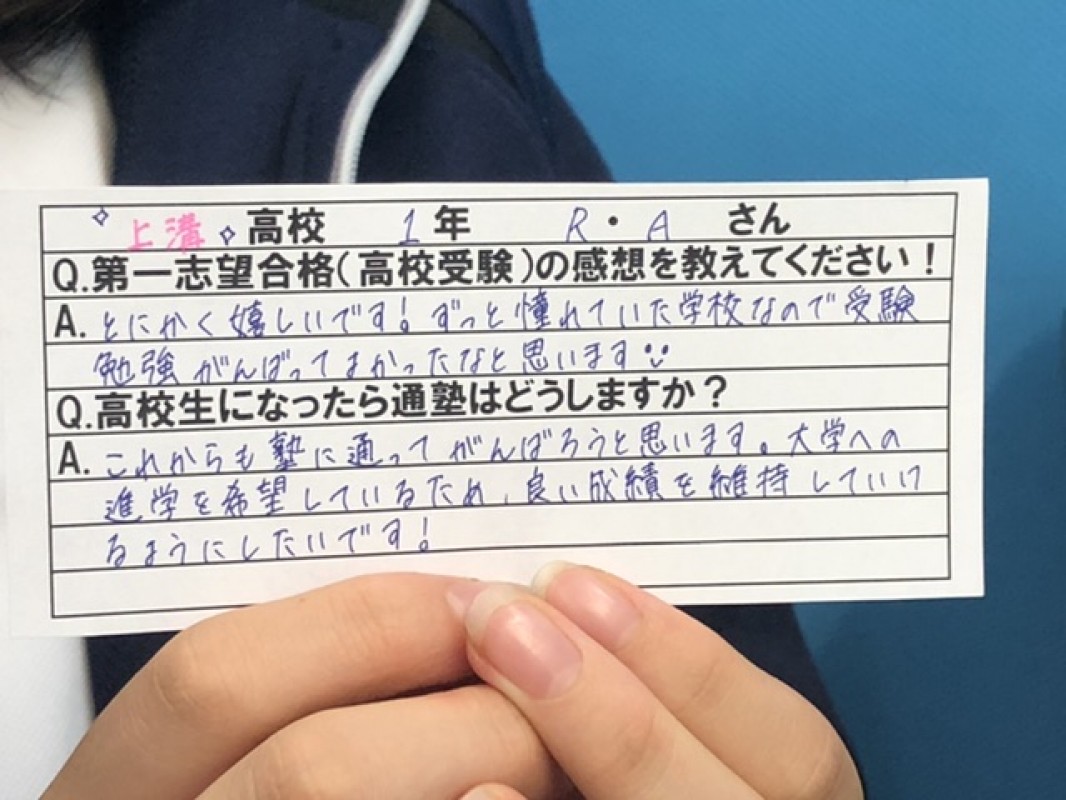 上溝 高校 1年 R・A さん
Q.第一志望合格(高校受験)の感想を教えてください!
A.とにかく嬉しいです!ずっと憧れていた学校なので受験
勉強がんばってよかったなと思います
Q.高校生になったら通塾はどうしますか?
A.これからも塾に通ってがんばろうと思います。大学への
進学を希望しているため、良い成績を維持していけ
るようにしたいです!